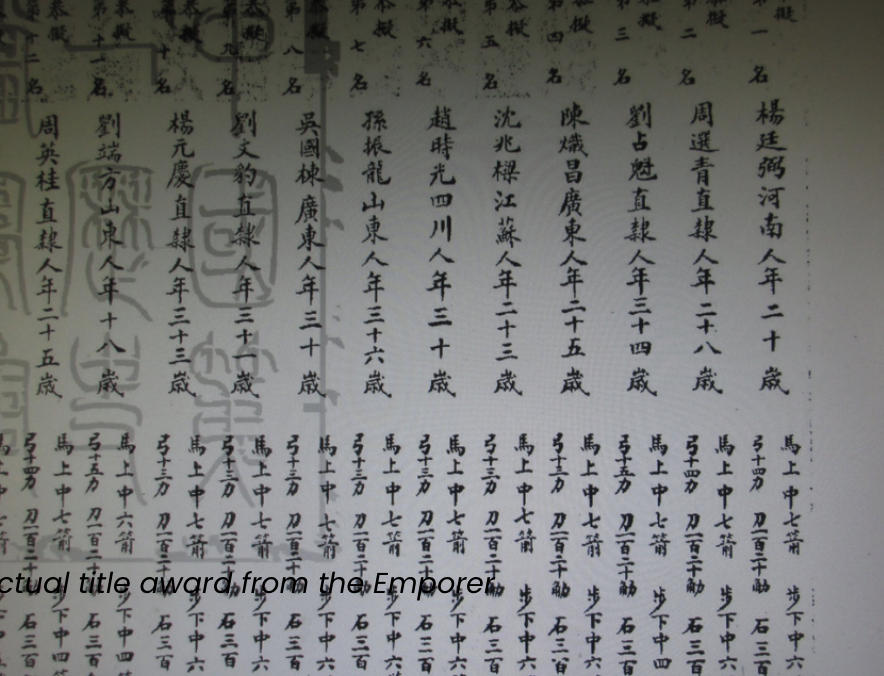 恭擬
第一名
楊廷弼河南人年二十歲
馬上中七箭 步下中六
弓十四力 刀一百二十觔 石三百
恭擬
第二名
周選青直隸人年二十八歲
馬上中七箭 步下中六
弓十四力 刀一百二十觔 石三百
恭擬
第三名
劉占魁直隸人年三十四歲
馬上中七箭 步下中四
弓十五力 刀一百二十觔 石三百
恭擬
第四名
陳熾昌廣東人年二十五歲
馬上中七箭 步下中六
弓十三力 刀一百二十觔 石三百
恭擬
第五名
沈兆樑江蘇人年二十三歲
馬上中七箭 步下中六
弓十三力 刀一百二十觔 石三百
恭擬
第六名
趙時光四川人年三十歲
馬上中七箭 步下中六
弓十三力 刀一百二十觔 石三百
恭擬
第七名
孫振龍山東人年三十六歲
馬上中七箭 步下中六箭
弓十三力 刀一百二十觔 石三百
恭擬
第八名
吳國棟廣東人年三十歲
馬上中七箭 步下中六
弓十三力 刀一百二十觔 石三百
恭擬
第九名
劉文豹直隸人年三十一歲
馬上中七箭 步下中六
弓十三力 刀一百二十觔 石三百
恭擬
第十名
楊元慶直隸人年三十三歲
馬上中七箭 步下中六
弓十三力 刀一百二十觔 石三百
恭擬
第十一名
劉端方山東人年十八歲
馬上中六箭 步下中四箭
弓十五力 刀一百二十觔 石三百
恭擬
第十二名
周英桂直隸人年二十五歲
馬上中七箭 步下中四箭
弓十四力 刀一百二十觔 石三百
ctual title award from the Emporer